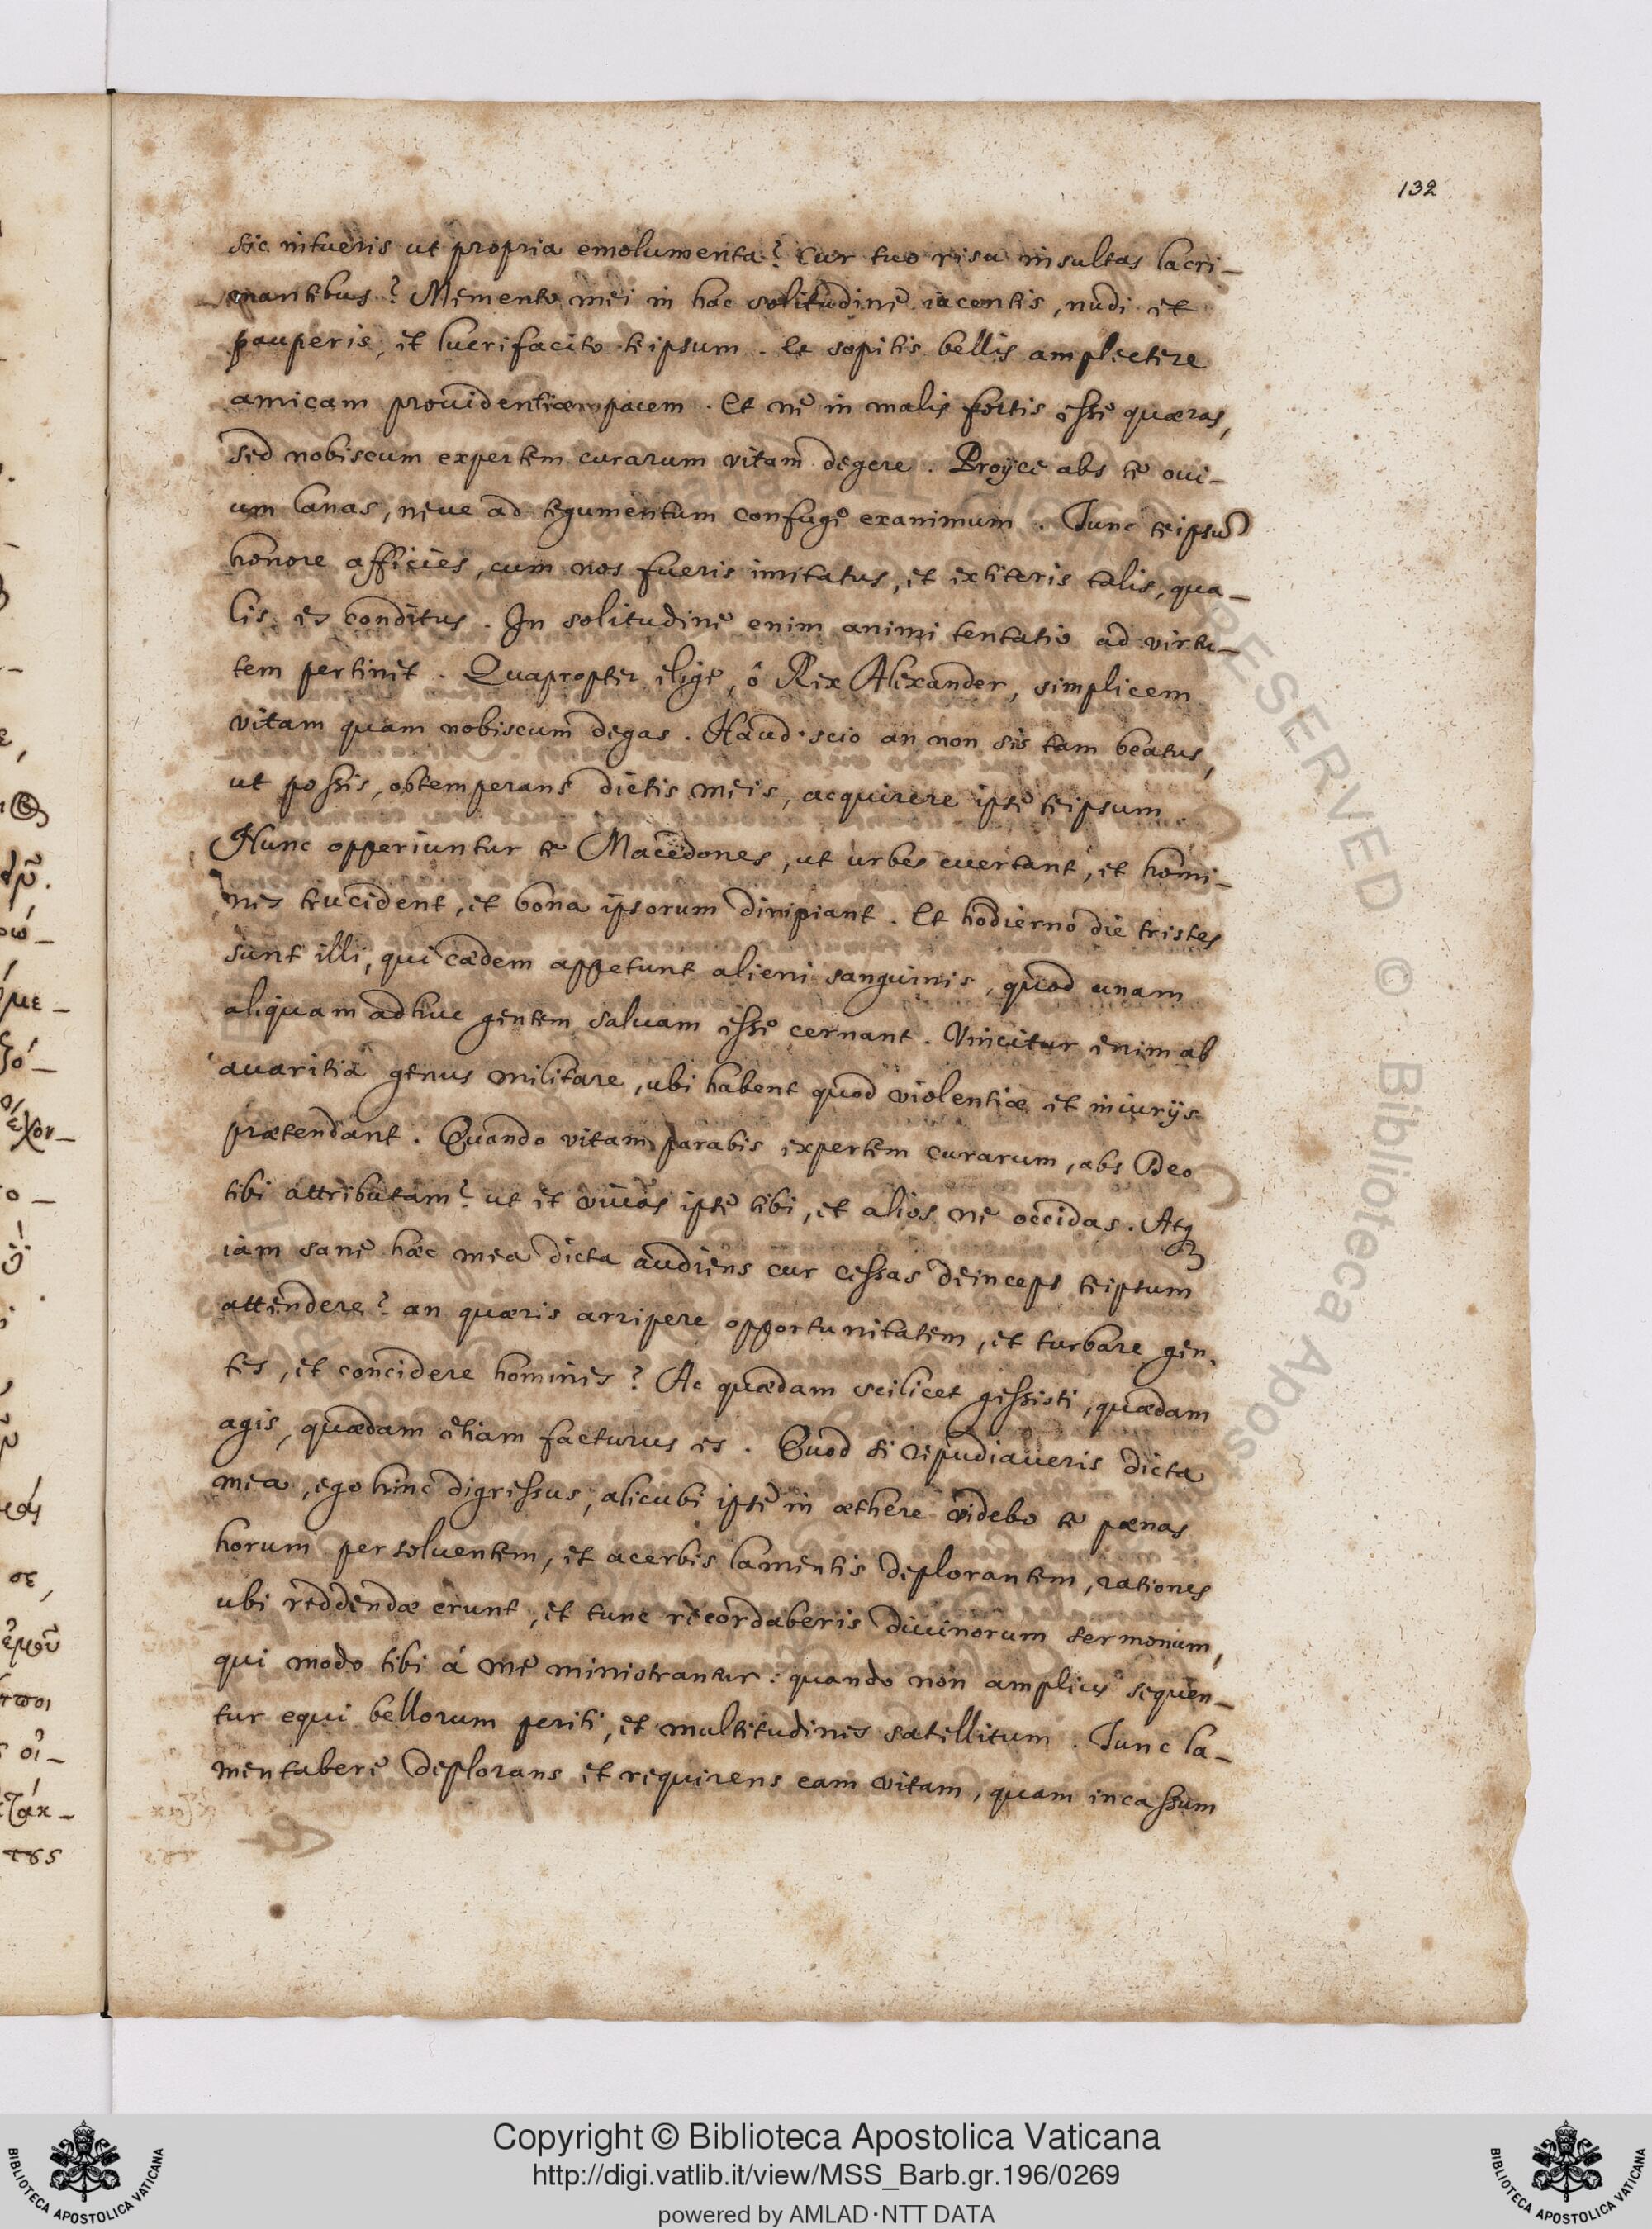 132
sic intueris ut propria emolumenta? Cur tuo risu insultas lacri-
mantibus? Memento mei in hac solitudine iacentis, nudi et
pauperis, et lucrifacito teipsum. Et sopitis bellis amplectere
amicam prouidentiæ pacem. Et ne in malis fortis esse quæras,
sed nobiscum expertem curarum vitam degere. Proijce abs te oui-
um lanas, neue ad tegumentum confuge exanimum. Tunc teipsū
honore afficies, cum nos fueris imitatus, et extiteris talis, qua-
lis es conditus. In solitudine enim animi tentatio ad virtu-
tem pertinet. Quapropter elige, ô Rex Alexander, simplicem
vitam quam nobiscum degas. Haud scio an non sis tam beatus,
ut possis, obtemperans dictis meis, acquirere ipse teipsum.
Nunc opperiuntur te Macedones, ut urbes euertant, et homi-
nes trucident, et bona ipsorum diripiant. Et hodierno die tristes
sunt illi, qui cædem appetunt alieni sanguinis, quod unam
aliquam adhuc gentem saluam esse cernant. Vincitur enim ab
auaritia genus militare, ubi habent quod violentiæ et iniurijs
prætendant. Quando vitam parabis expertem curarum, abs Deo
tibi attributam? ut et viuas ipse tibi, et alios ne occidas. Atq
iam sane hæc mea dicta audiens cur cessas deinceps teipsum
attendere? an quæris arripere opportunitatem, et turbare gen-
tes, et concidere homines? Ac quædam scilicet gessisti, quædam
agis, quædam etiam facturus es. Quod si repudiaueris dicta
mea, ego hinc digressus, alicubi ipse in æthere videbo te pœnas
horum persoluentem, et acerbis lamentis deplorantem, rationes
ubi reddendæ erunt, et tunc recordaberis diuinorum sermonum,
qui modo tibi á me ministrantur: quando non amplius sequen-
tur equi bellorum periti, et multitudines satellitum. Tunc la-
mentabere deplorans et requirens eam vitam, quam incassum
Copyright © Biblioteca Apostolica Vaticana
http://digi.vatlib.it/view/MSS_Barb.gr.196/0269
powered by AMLAD·NTT DATA
BIBLIOTECA APOSTOLICA VATICANA
BIBLIOTECA APOSTOLICA VATICANA